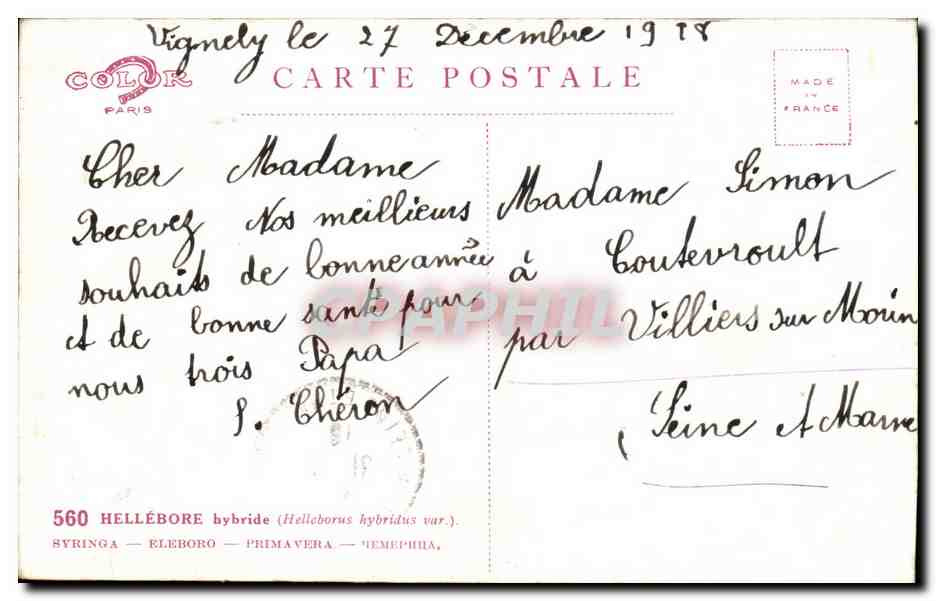 Vignely le 27 Decembre 19
COLOR
PARIS
CARTE POSTALE
MADE
IN
FRANCE
Cher Madame
Recevez Nos meillieurs
souhaits de bonne année
et de bonne santé pour
nous trois Papa
S. Chéron
Madame Simon
à Coutevroult
par Villiers sur Morin
(Seine et Marne
CPAPHIL
560 HELLÉBORE hybride (Helleborus hybridus var.).
SYRINGA — ELEBORO — PRIMAVERA — ЧЕМЕРИЦА.